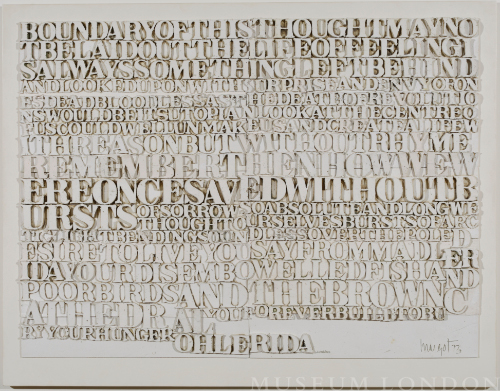 BOUNDARYOFTHISTHOUGHTMAYNO
TBELAIDOUTTHELIFEOFFEELINGI
SALWAYSSOMETHINGLEFTBEHIND
ANDLOOKEDUPONWITHSURPRISEANDENVYORON
ESDEADBLOODLESSASTHEDEATHOFREVOLUTIO
NSWOULDBEITSUTOPIANLOOKATTHECENTREO
FUSCOULDWELLUNMAKEUSANDCREATEALLNEW
YTHREASONBUTWITHOUTRHYME
REMEMBERTHENHOWWEW
EREONCESAVEDWITHOUTB
URSTSOFSORROWSOABSOLUTEANDLONGWE
THOUGHTOURSELVESBURSTSOFARC
TICLIGHTBENDINGSOUNDLESSOVERTHEPOLED
ESIRETOLIVEYOUSAVEFROMMADLER
IDAYOURDISEMBOWELLEDFISHAND
POORBIRDSANDTHEBROWNC
ATHEDRALYOUFOREVERBUILTFORU
BYYOURHUNGEROHLERIDA
MUSEUM LONDON